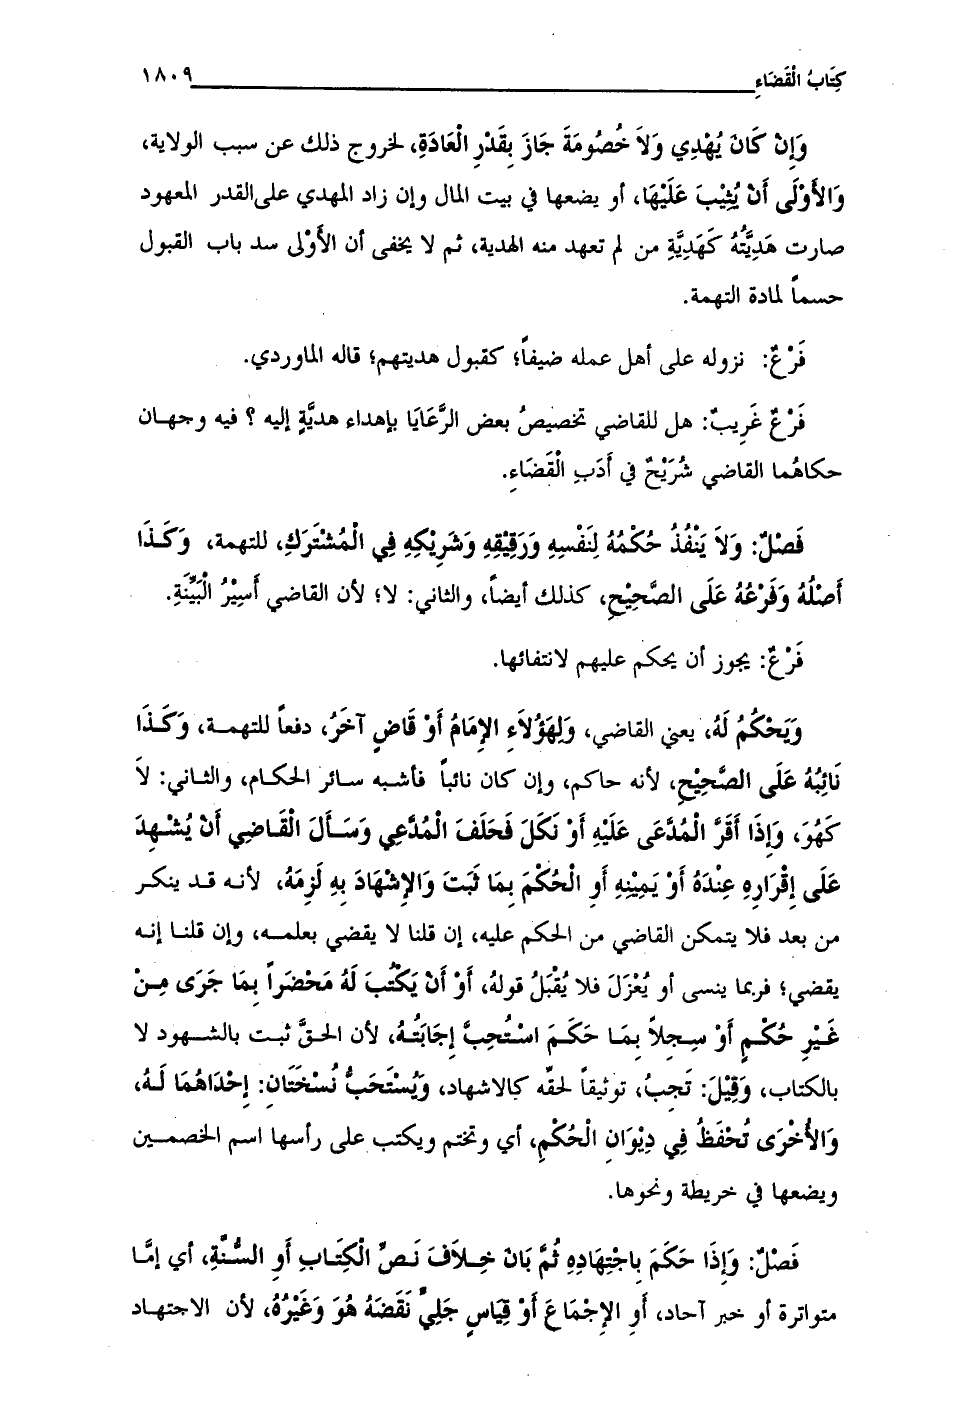 كِتَابُ الْقَضَاءِ ١٨٠٩
وَإِنْ كَانَ يُهْدِي وَلاَ خُصُومَةَ جَازَ بِقَدْرِ الْعَادَةِ، لخروج ذلك عن سبب الولاية،
وَالأَوْلَى أَنْ يُثِيْبَ عَلَيْهَا، أو يضعها في بيت المال وإن زاد المهدي على القدر المعهود
صارت هَدِيَّتُهُ كَهَدِيَّةِ من لم تعهد منه الهدية، ثم لا يخفى أن الأَوْلى سد باب القبول
حسماً لمادة التهمة.
فَرْعٌ: نزوله على أهل عمله ضيفاً؛ كقبول هديتهم؛ قاله الماوردي.
فَرْعٌ غَرِيبٌ: هل للقاضي تخصيصُ بعض الرَّعَايَا بإهداء هديَّةٍ إليه ؟ فيه وجهان
حكاهُما القاضي شُرَيْحٌ في أَدَبِ الْقَضَاءِ.
فَصْلٌ: وَلاَ يَنْفُذُ حُكْمُهُ لِنَفْسِهِ وَرَقِيْقِهِ وَشَرِيْكِهِ فِي الْمُشْتَرَكِ، للتهمة، وَكَذَا
أَصْلُهُ وَفَرْعُهُ عَلَى الصَّحِيْحِ، كذلك أيضاً، والثاني: لا؛ لأن القاضي أَسِيْرُ الْبَيِّنَةِ.
فَرْعٌ: يجوز أن يحكم عليهم لانتفائها.
وَيَحْكُمُ لَهُ، يعني القاضي، وَلِهَؤُلاَءِ الإِمَامُ أَوْ قَاضٍ آخَرُ، دفعاً للتهمة، وَكَذَا
نَائِبُهُ عَلَى الصَّحِيْحِ، لأنه حاكم، وإن كان نائباً فأشبه سائر الحكام، والثاني: لاَ
كَهُوَ، وَإِذَا أَقَرَّ الْمُدَّعَى عَلَيْهِ أَوْ نَكَلَ فَحَلَفَ الْمُدَّعِي وَسَأَلَ الْقَاضِي أَنْ يُشْهِدَ
عَلَى إِقْرَارِهِ عِنْدَهُ أَوْ يَمِيْنِهِ أَوِ الْحُكْمَ بِمَا ثَبَتَ وَالإِشْهَادَ بِهِ لَزِمَهُ، لأنه قد ينكر
من بعد فلا يتمكن القاضي من الحكم عليه، إن قلنا لا يقضي بعلمه، وإن قلنا إنه
يقضي؛ فربما ينسى أو يُعْزَلَ فلا يُقْبَلُ قولهُ، أَوْ أَنْ يَكْتُبَ لَهُ مَحْضَراً بِمَا جَرَى مِنْ
غَيْرِ حُكْمٍ أَوْ سِجِلاًّ بِمَا حَكَمَ اسْتُحِبَّ إِجَابَتُهُ، لأن الحقَّ ثبت بالشهود لا
بالكتاب، وَقِيْلَ: تَجِبُ، توثيقاً لحقّه كالاشهاد، وَيُسْتَحَبُّ نُسْخَتَانِ: إِحْدَاهُمَا لَهُ،
وَالأُخْرَى تُحْفَظُ فِي دِيْوَانِ الْحُكْمِ، أي وتختم ويكتب على رأسها اسم الخصمين
ويضعها في خريطة ونحوها.
فَصْلٌ: وَإِذَا حَكَمَ بِاجْتِهَادِهِ ثُمَّ بَانَ خِلاَفَ نَصِّ الْكِتَابِ أَوِ السُّنَّةِ، أي إمَّا
متواترة أو خبر آحاد، أَوِ الإِجْمَاعَ أَوْ قِيَاسٍ جَلِيٍّ نَقَضَهُ هُوَ وَغَيْرُهُ، لأن الاجتهاد